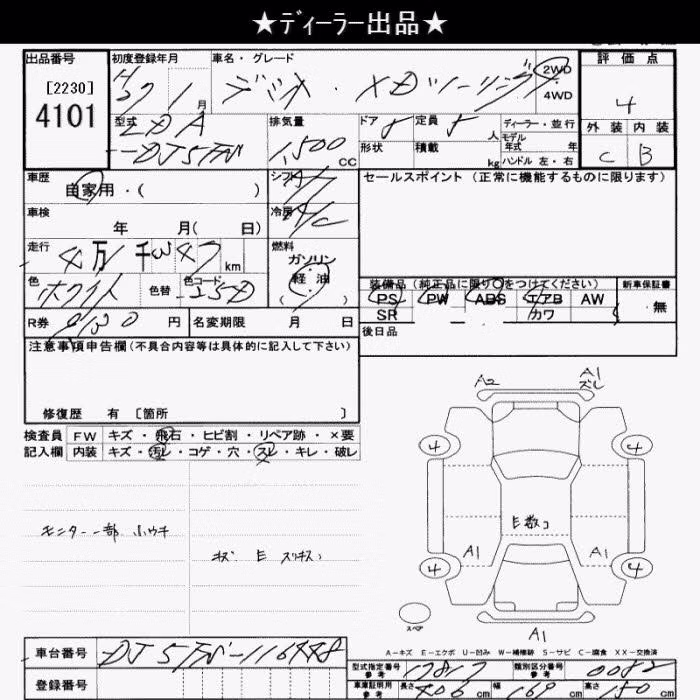 ★ディーラー出品★
出品番号
[2230]
4101
初度登録年月
H 27 1 月
車名・グレード
デミオ・XDツーリング
2WD
4WD
評価点
4
外装 内装
C B
型式
LDA
-DJ5FN
排気量
1,500 CC
ドア
5
定員
5 人
形状
積載 kg
ディーラー・並行
モデル
年式 年
ハンドル 左・右
車歴
自家用・( )
シフト
A/T
セールスポイント(正常に機能するものに限ります)
車検
年 月( 日)
冷房
A/C
走行
万 千 km
燃料
ガソリン
軽油
( )
色
ホワイト
色替
色コード
25D
装備品(純正品に限り○をつけてください)
新車保証書
PS PW ABS エアB AW
SR カワ
無
後日品
R券
円
名変期限 月 日
注意事項申告欄(不具合内容等は具体的に記入して下さい)
修復歴 有 [箇所 ]
検査員
記入欄
FW キズ・飛石・ヒビ割・リペア跡・×要
内装 キズ・汚レ・コゲ・穴・スレ・キレ・破レ
モニター一部 小ウチ
A2
A1
ズレ
4
4
E数コ
A1
A1
4
4
スペア
A1
A-キズ E-エクボ U-凹み W-補修跡 S-サビ C-腐食 XX-交換済
車台番号
DJ5FN-116448
登録番号
型式指定番号
参考
17817
類別区分番号
参考
0082
車庫証明用
参考
長さ 406 cm
幅 169 cm
高さ 150 cm